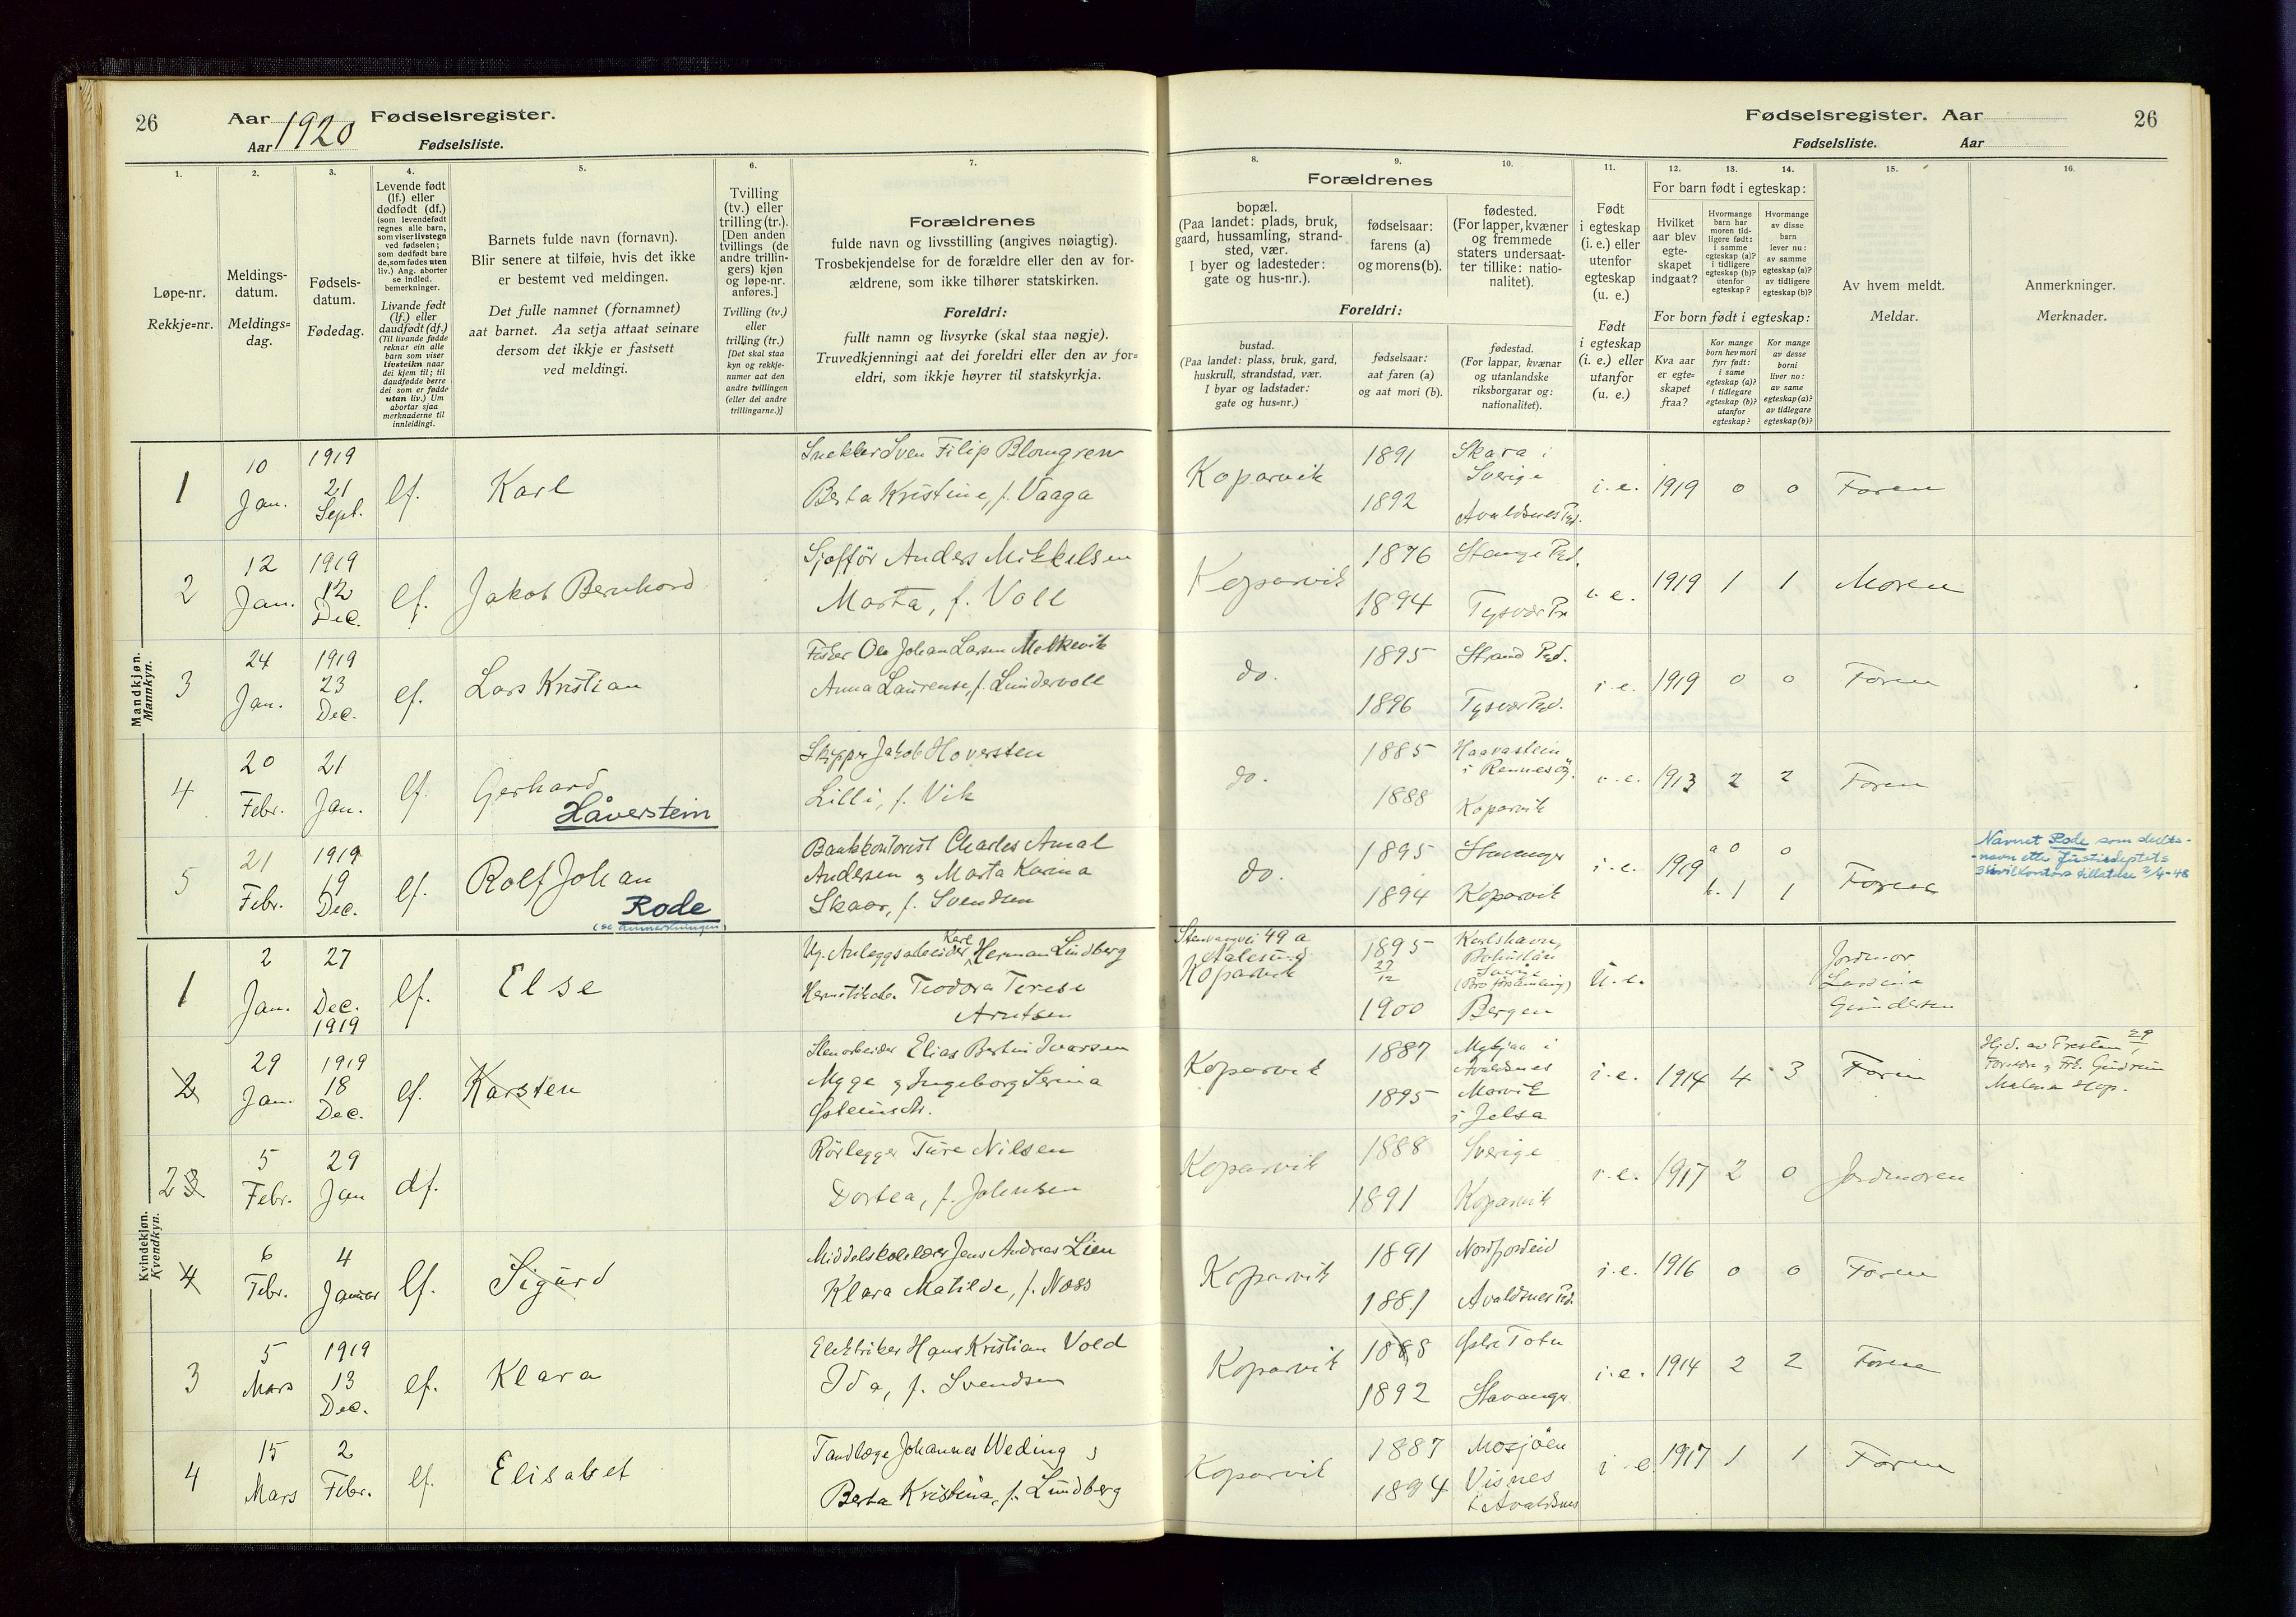 26
Aar 1920 Fødselsregister.
Aar Fødselsliste.
Fødselsregister. Aar
26
Fødselsliste. Aar
1.
Løpe-nr.
Rekkje=nr.
2.
Meldings-
datum.
Meldings=
dag.
3.
Fødsels-
datum.
Fødedag.
4.
Levende født
(lf.) eller
dødfødt (df.)
(som levendefødt
regnes alle barn,
som viser livstegn
ved fødselen;
som dødfødt bare
de, som fødes uten
liv.) Ang. aborter
se indled.
bemerkninger.
Livande født
(lf.) eller
daudfødt (df.)
(Til livande fødde
reknar ein alle
barn som viser
livsteikn naar
dei kjem til; til
daudfødde berre
dei som er fødde
utan liv.) Um
abortar sjaa
merknaderne til
innleidingi.
5.
Barnets fulde navn (fornavn).
Blir senere at tilføie, hvis det ikke
er bestemt ved meldingen.
Det fulle namnet (fornamnet)
aat barnet. Aa setja attaat seinare
dersom det ikkje er fastsett
ved meldingi.
6.
Tvilling
(tv.) eller
trilling (tr.).
[Den anden
tvillings (de
andre trillin-
gers) kjøn
og løpe-nr.
anføres.]
Tvilling (tv.)
eller
trilling (tr.)
[Det skal staa
kyn og rekkje-
numer aat den
andre tvillingen
(eller dei andre
trillingarne.)]
7.
Forældrenes
fulde navn og livsstilling (angives nøiagtig).
Trosbekjendelse for de forældre eller den av for-
ældrene, som ikke tilhører statskirken.
Foreldri:
fullt namn og livsyrke (skal staa nøgje).
Truvedkjenningi aat dei foreldri eller den av for=
eldri, som ikkje høyrer til statskyrkja.
Forældrenes
8.
bopæl.
(Paa landet: plads, bruk,
gaard, hussamling, strand-
sted, vær.
I byer og ladesteder:
gate og hus-nr.).
9.
fødselsaar:
farens (a)
og morens (b).
10.
fødested.
(For lapper, kvæner
og fremmede
staters undersaat-
ter tillike: natio-
nalitet).
Foreldri:
bustad.
(Paa landet: plass, bruk, gard,
huskrull, strandstad, vær.
I byar og ladstader:
gate og hus=nr.)
fødselsaar:
aat faren (a)
og aat mori (b).
fødestad.
(For lappar, kvænar
og utanlandske
riksborgarar og:
nationalitet).
11.
Født
i egteskap
(i. e.) eller
utenfor
egteskap
(u. e.)
Født
i egteskap
(i. e.) eller
utanfor
(u. e.)
12. 13. 14.
For barn født i egteskap:
Hvilket
aar blev
egte-
skapet
indgaat?
Hvormange
barn har
moren tid-
ligere født:
i samme
egteskap (a)?
i tidligere
egteskap (b)?
utenfor
egteskap?
Hvormange
av disse
barn
lever nu:
av samme
egteskap (a)?
av tidligere
egteskap (b)?
For born født i egteskap:
Kva aar
er egte=
skapet
fraa?
Kor mange
born hev mori
fyrr født:
i same
egteskap (a)?
i tidlegare
egteskap (b)?
utanfor
egteskap?
Kor mange
av desse
borni
liver no:
av same
egteskap (a)?
av tidlegare
egteskap (b)?
15.
Av hvem meldt.
Meldar.
16.
Anmerkninger.
Merknader.
Mandkjøn.
Mannkyn.
1 10 Jan. 1919 21 Sept. lf. Karl
Snekker Sven Filip Blomgren
Berta Kristine, f. Vaaga
Koparvik 1891 Skara i Sverige
1892 Avaldsnes Pgd.
i. e. 1919 0 0 Faren
2 12 Jan. 1919 12 Dec. lf. Jakob Bernhard
Sjofför Anders Mikkelsen
Marta, f. Voll
Koparvik 1896 Stange Pgd.
1894 Tysvær
i. e. 1919 1 1 Moren
3 24 Jan. 1919 23 Dec. lf. Lars Kristian
Fisker Ole Johan Larsen Melkevik
Anna Laurense, f. Lundervoll
do. 1895 Strand Pgd.
1896 Tysvær Pgd.
i. e. 1919 0 0 Faren
4 20 Febr. 21 Jan. lf. Gerhard
Håverstein
Skipper Jakob Hoversten
Lilli, f. Vik
do. 1885 Haavastein
i Rennesöy.
1888 Koparvik
i. e. 1913 2 2 Faren
5 21 Febr. 1919 19 Dec. lf. Rolf Johan
Rode
(se anmerkningen)
Bankkontorist Charles Amal
Andersen og Marta Karina
Skaar, f. Svendsen
do. 1895 Stavanger
1894 Koparvik
i. e. 1919 a 0 0
b. 1 1 Faren
Navnet Rode som slekts-
-navn etter Justisdeptets
sivilkontors tillatelse 2/4-48
Kvindekjøn.
Kvendkyn.
1 2 Jan. 27 Dec. 1919 lf. Else
Ug. Anleggsarbeider Karl Herman Lindberg
Teodora Terese
Arntsen
49 a
Aalesund
Koparvik
1895 27/12 Karlshavn,
Bohuslän
Sverige
(Bro församling)
1900 Bergen
u. e.
Jordmor
Lovise
Gundersen
2 29 Jan. 1919 18 Dec. lf. Karsten
Stenarbeider Elias Bertin Ivarsen
Myge og Ingeborg Serina
Østeinsdtr.
Koparvik 1887 i
Avaldsnes
1895 Marvik
i Jelsa
i. e. 1914 4 3 Faren
Hjd. av Presten 29/1
Foreldre og Frk. Gudrun
Malene Hop.
2 3 5 Febr. 29 Jan df.
Rörlegger Ture Nilsen
Dortea, f. Johnsen
Koparvik 1888 Sverige
1891 Koparvik
i. e. 1917 2 0 Jordmoren
4 6 Febr. 4 Januar lf. Sigurd
Middelskolelærer Jens Andreas Lien
Klara Matilde, f. Næss
Koparvik 1891 Nordfjordeid
1881 Avaldsnes Pgd.
i. e. 1916 0 0 Faren
3 5 Mars 1919 13 Dec. lf. Klara
Elektriker Hans Kristian Vold
Ida, f. Svendsen
Koparvik 1888 Østre Toten
1892 Stavanger
i. e. 1914 2 2 Faren
4 15 Mars 2 Febr. lf. Elisabet
Tandlæge Johannes Weding og
Berta Kristina, f. Lundberg
Koparvik 1887 Mosjöen
1894 Visnes
i Avaldsnes
i e. 1917 1 1 Faren